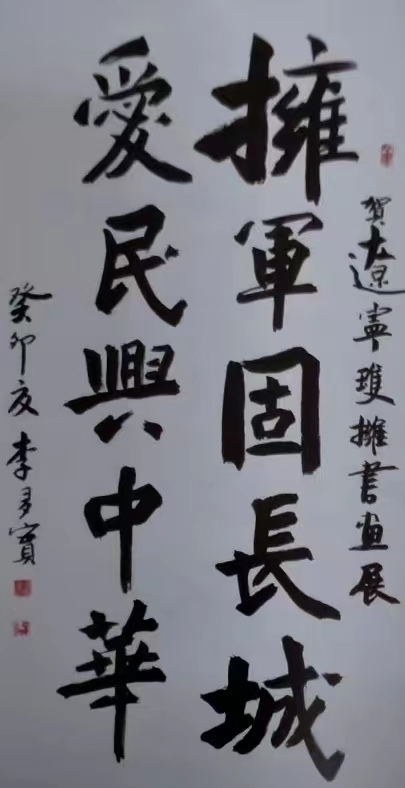 賀遼寧雙擁書畫展
擁軍固長城
愛民興中華
癸卯夏李多寶